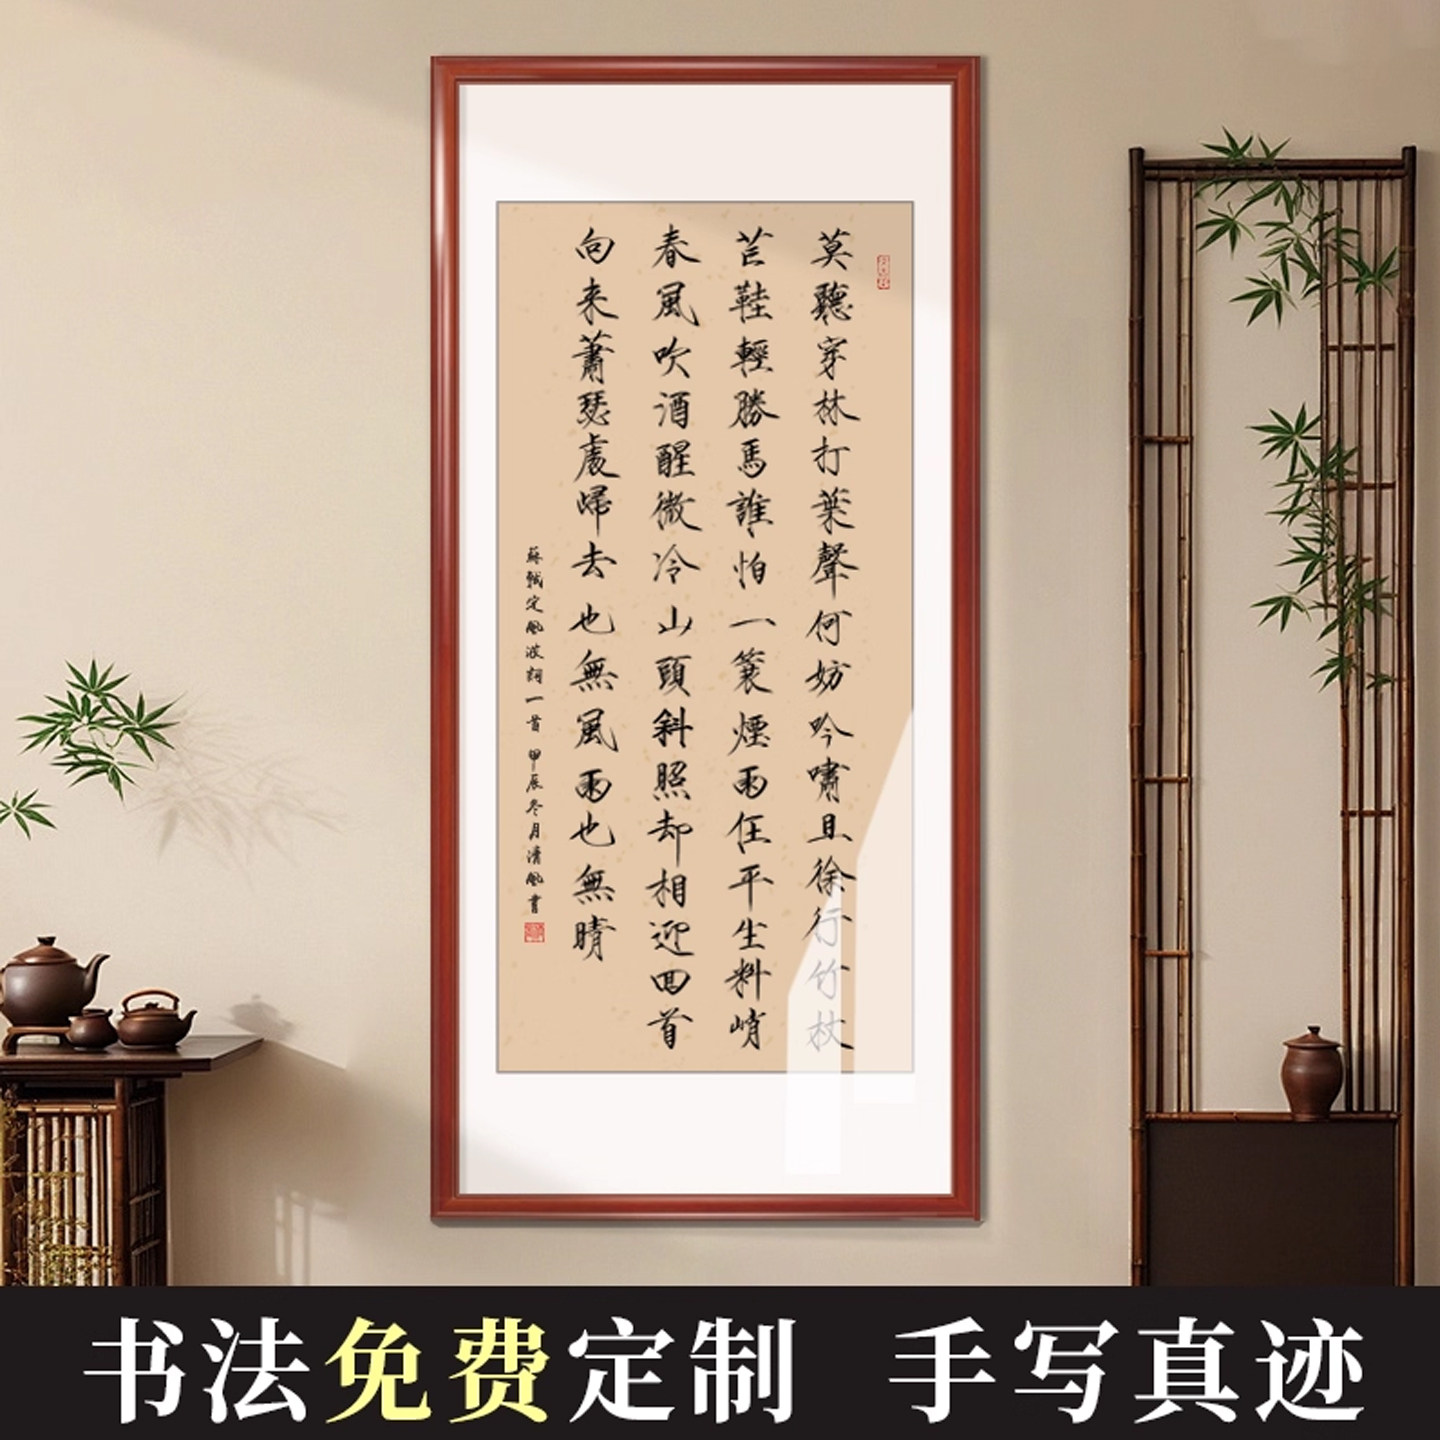 莫聽穿林打葉聲何妨吟嘯且徐行竹杖
芒鞋輕勝馬誰怕一蓑煙雨任平生料峭
春風吹酒醒微冷山頭斜照却相迎回首
向来蕭瑟處歸去也無風雨也無晴
蘇軾定風波詞一首 甲辰冬月清風書
书法免费定制 手写真迹